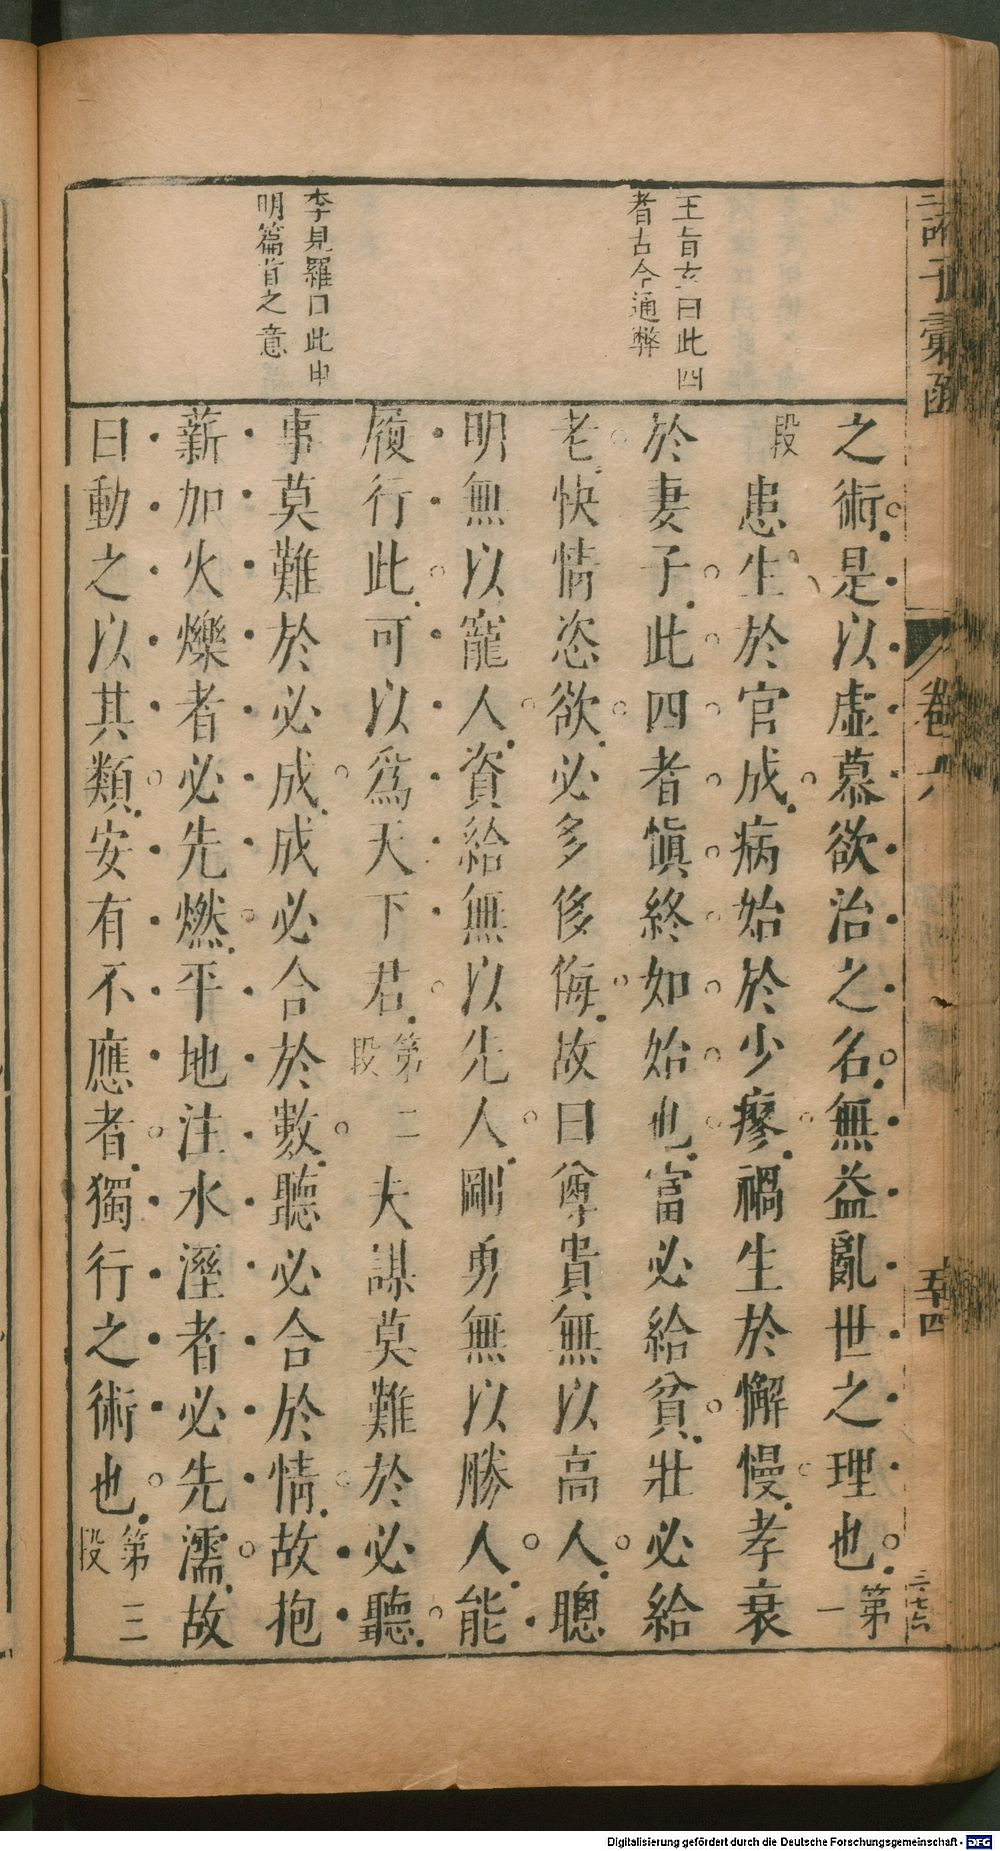 諸子彙函
卷六
五十四
三七六
王旨玄曰此四
者古今通弊
李見羅曰此申
明篇首之意
之術是以虛慕欲治之名無益亂世之理也第一
段患生於官成病始於少瘳禍生於懈慢孝衰
於妻子此四者慎終如始也富必給貧壯必給
老快情恣欲必多侈侮故曰尊貴無以高人聰
明無以寵人資給無以先人剛勇無以勝人能
履行此可以為天下君第二段夫謀莫難於必聽
事莫難於必成成必合於數聽必合於情故抱
薪加火爍者必先燃平地注水溼者必先濡故
曰動之以其類安有不應者獨行之術也第三段
Digitalisierung gefördert durch die Deutsche Forschungsgemeinschaft - DFG